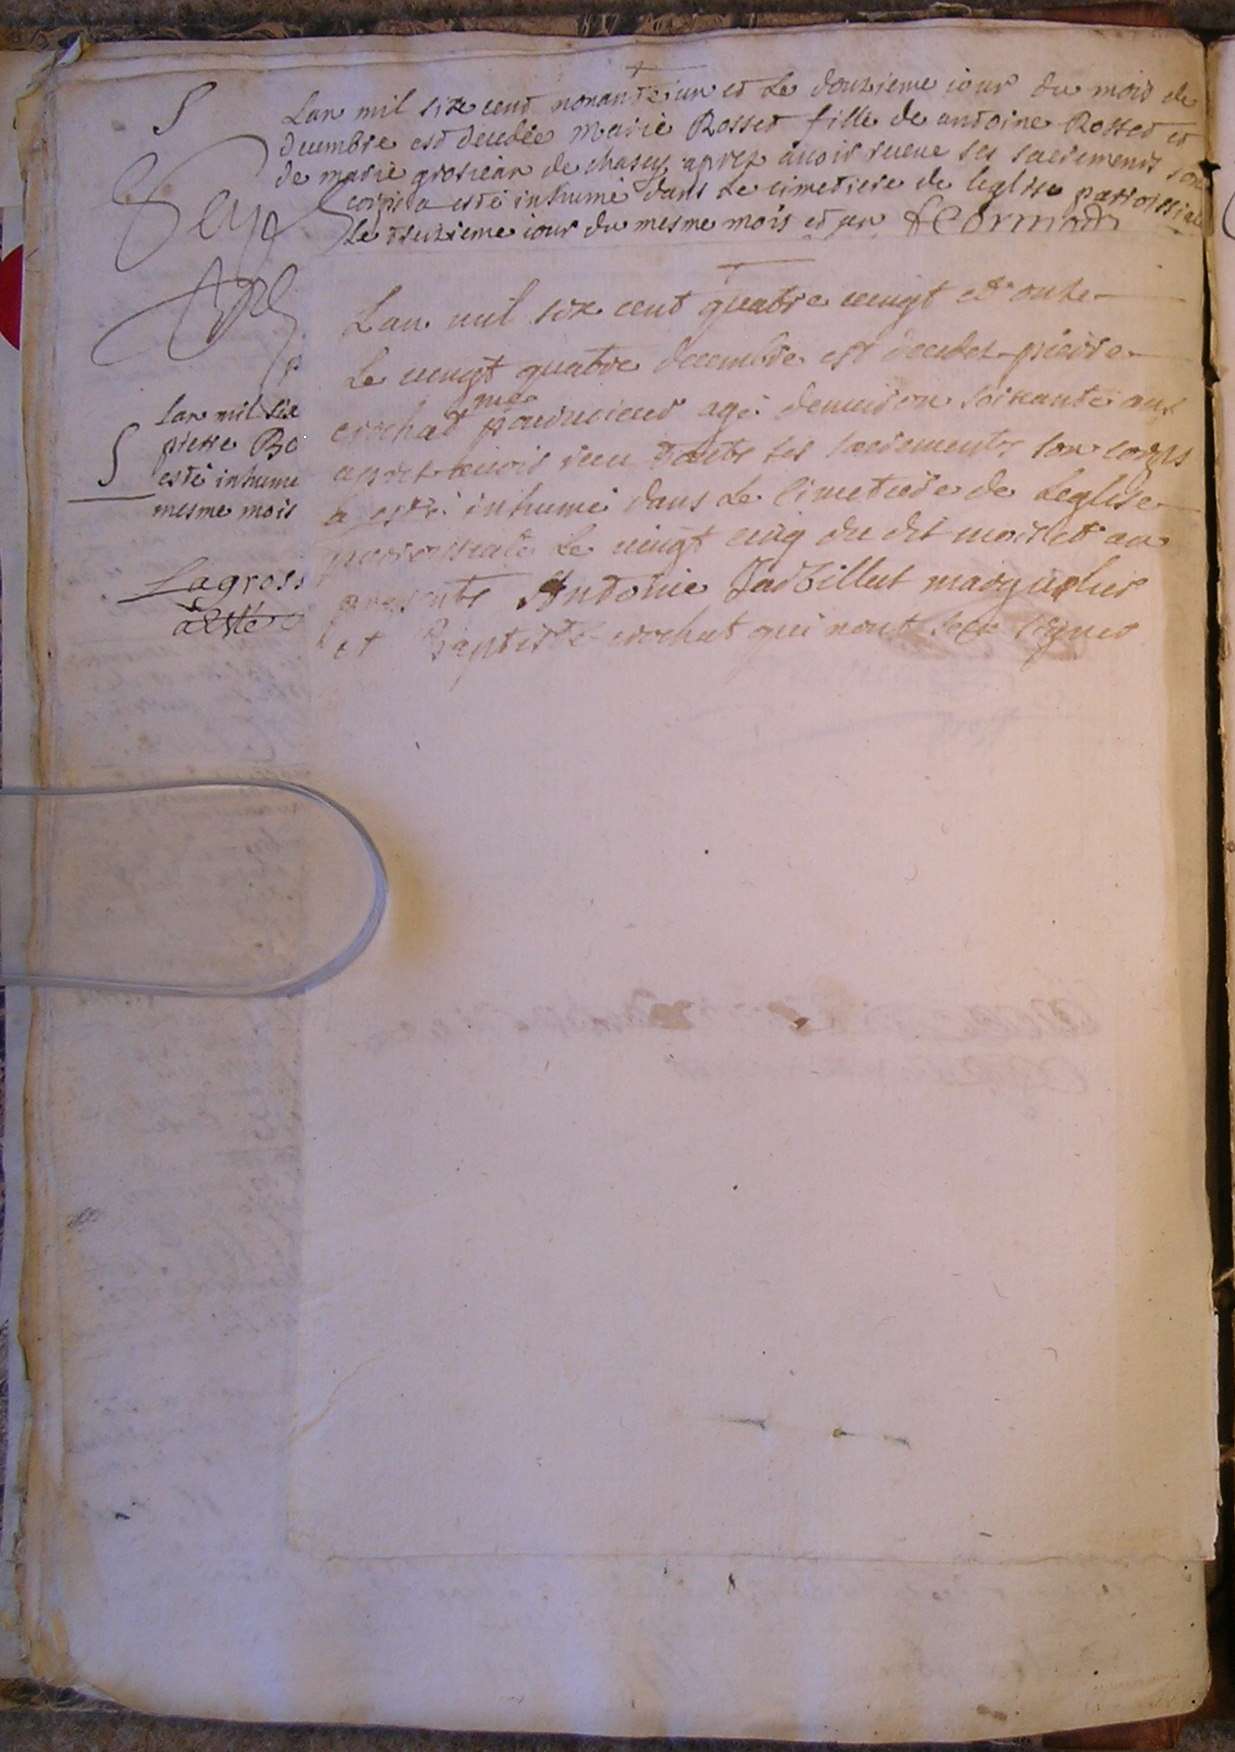 S
Lan mil sixe cent nonante un et Le douzieme iour du mois de
decembre est decedée Marie Rosset fille de antoine Rosset et
de marie grosiean de chasey aprez auoir receue ses sacrements son
corps a esté inhumé dans Le cimetiere de leglise parroissial
Le treuzieme iour du mesme mois et an
Lan mil six cent quatre vingt et onze
Le vingt quatre decembre est decedez pierre
crochat agé denuiron soixante ans
apres auoir receu touts ses sacrements son corps
a esté inhumé dans Le Cimetiere de Leglise
parroissiale Le vingt cinq du dit mois et an
presents Antoine marguilier
et Baptiste crochet qui nont sceu signer
Lan mil six
pierre Bo
S
esté inhume
mesme mois
Lagross
a este